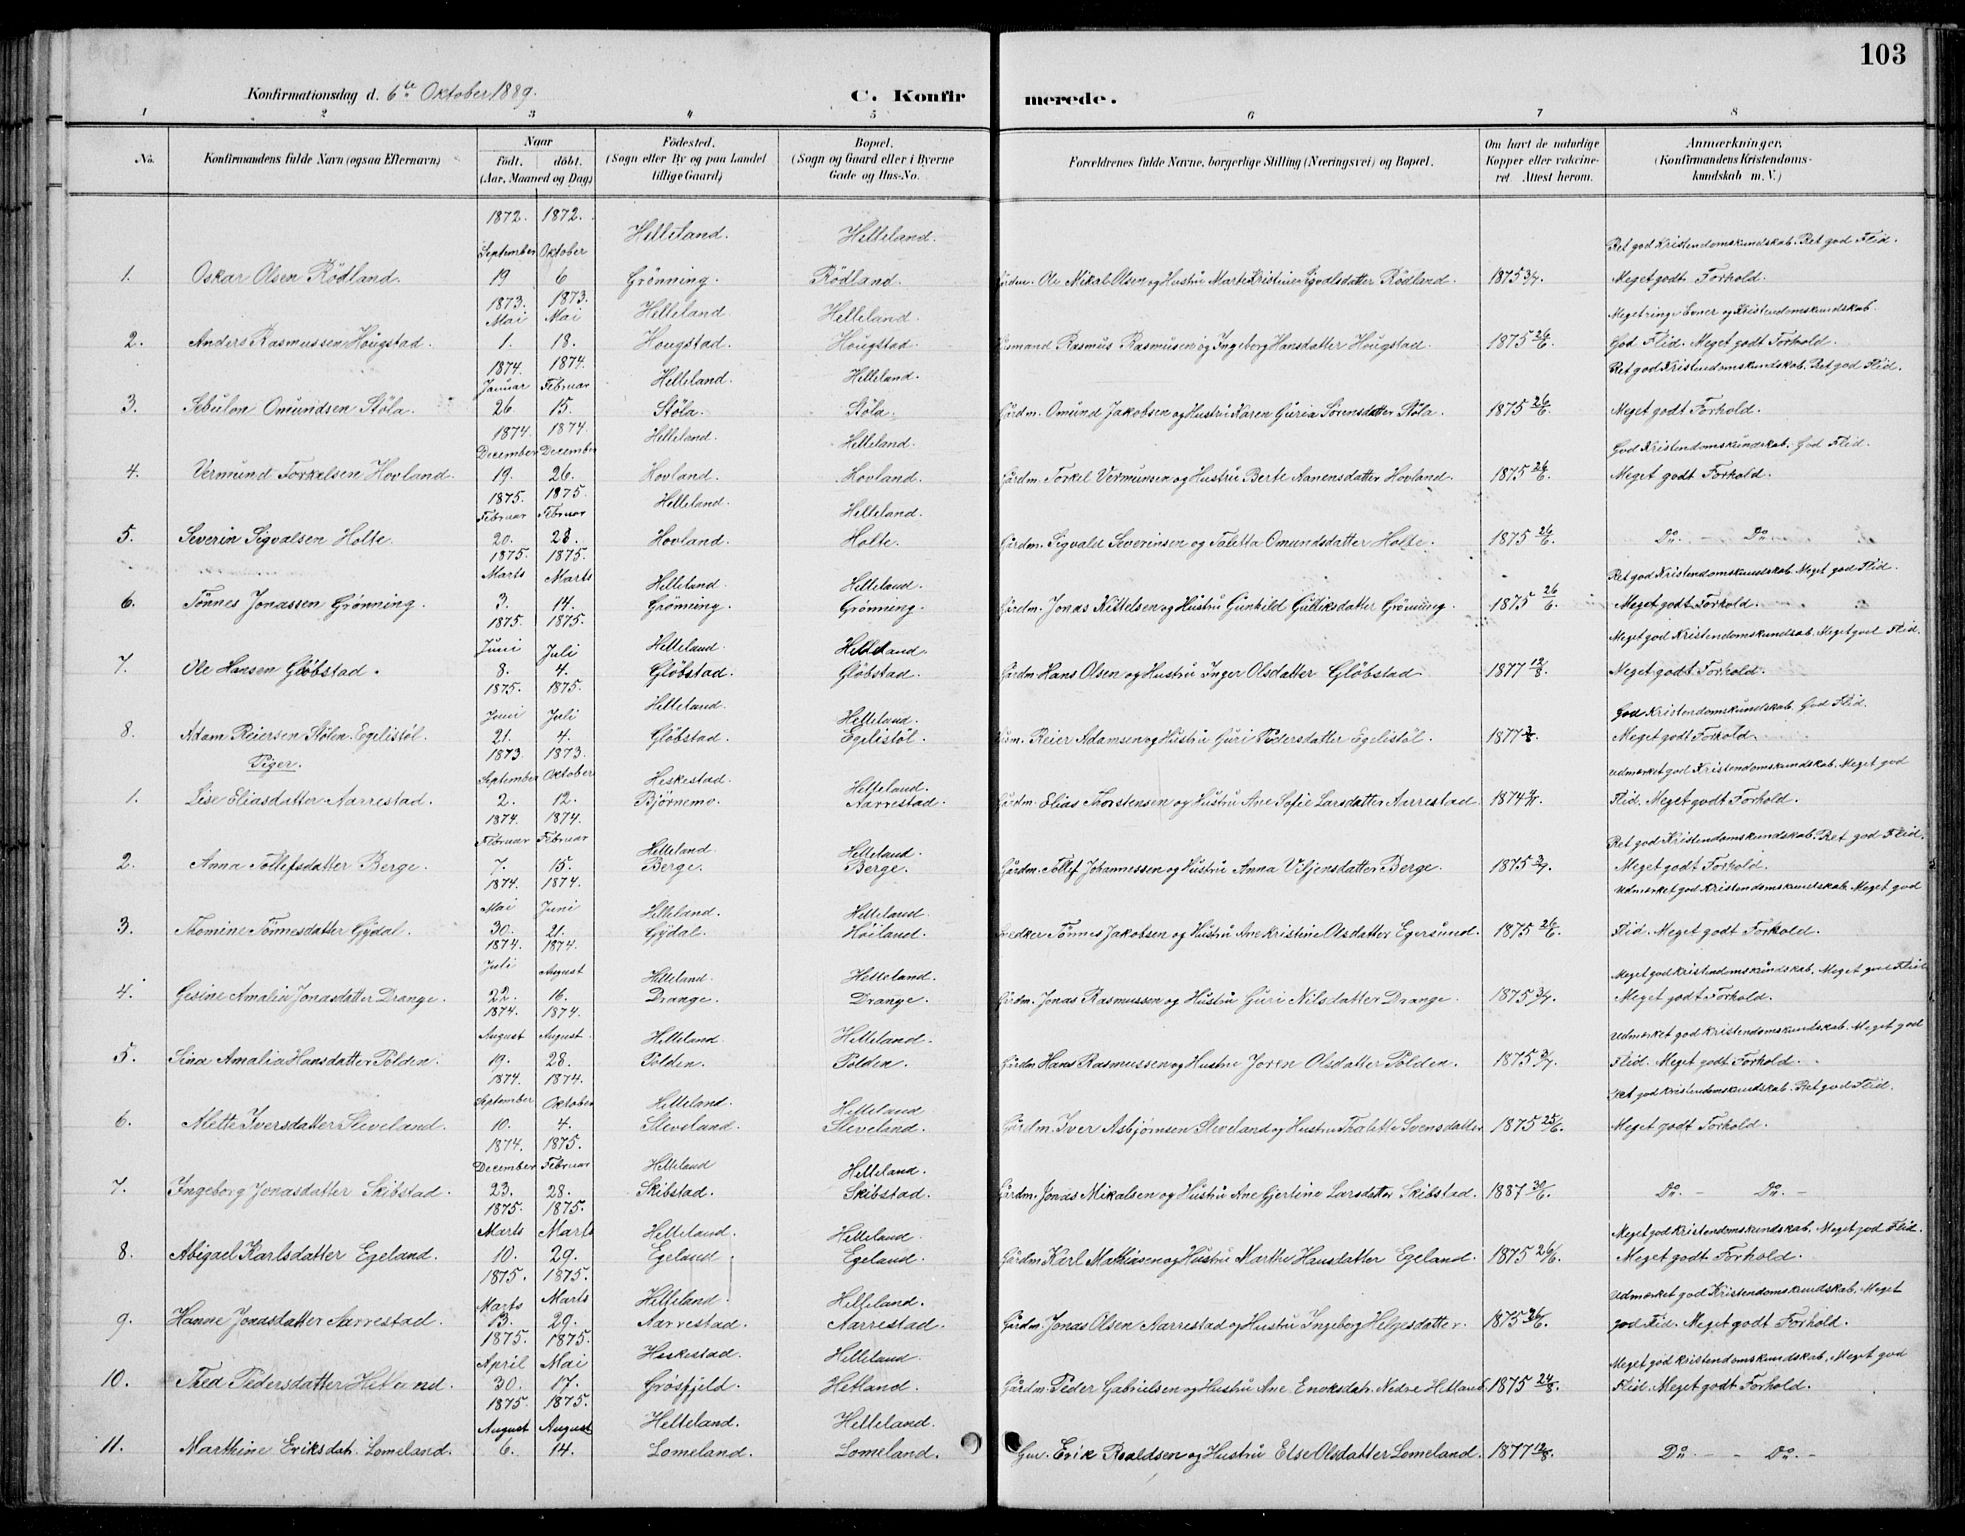 103
Konfirmationsdag d. 6te Oktober 1889.
C. Konfirmerede.
1 2 3 4 5 6 7 8
No.
Konfirmandens fulde Navn (ogsaa Efternavn)
Naar
födt. döbt.
(Aar, Maaned og Dag)
Födested.
(Sogn eller By og paa Landet
tillige Gaard)
Bopæl.
(Sogn og Gaard eller i Byerne
Gade og Hus-No.
Forældrenes fulde Navne, borgerlige Stilling (Næringsvei) og Bopæl.
Om havt de naturlige
Kopper eller vakcine-
ret. Attest herom.
Anmærkninger.
(Konfirmandens Kristendoms-
kundskab m. V.)
1872. 1872. Helleland. Helleland.
September Oktober Ret god Kristendomskundskab. Ret god Flid.
1. Oskar Olsen Rödland. 19 6 Grönning. Rödland. Gårdm. Ole Mikal Olsen og Hustru Marte Kristine Sigvalsdatter Rödland. 1875 3/7. Meget godt Forhold.
1873. 1873.
Mai Mai Helleland. Helleland. Meget ringe Evner og Kristendomskundskab.
2. Anders Rasmussen Hougstad. 1. 18. Hougstad. Hougstad. Husmand Rasmus Rasmusen og Ingeborg Hansdatter Hougstad. 1875 26/6. God Flid. Meget godt Forhold.
1874. 1874.
Januar Februar Helleland. Helleland. Ret god Kristendomskundskab. Ret god Flid.
3. Sebulon Omundsen Stöla. 26. 15. Stöla. Stöla. Gårdm. Omund Jakobsen og Hustru Karen Guria Sörensdatter Stöla. 1875 26/6. Meget godt Forhold.
1874. 1874.
December December Helleland. Helleland. God Kristendomskundskab. God Flid.
4. Vermund Torkelsen Hovland. 19. 26. Hovland. Hovland. Gårdm. Torkel Vermunsen og Hustru Berte Aanensdatter Hovland. 1875 26/6. Meget godt Forhold.
1875. 1875.
Februar Februar Helleland. Helleland.
5. Severin Sigvalsen Holte. 20. 28. Hovland. Holte. Gårdm. Sigvald Severinsen og Taletta Omundsdatter Holte. 1875 26/6. Do. - Do.
1875. 1875.
Marts Marts Helleland. Helleland. Ret god Kristendomskundskab. Meget god Flid.
6. Tönnes Jonassen Grönning. 3. 14. Grönning. Grönning. Gårdm. Jonas Kittelsen og Hustru Gunhild Gulliksdatter Grönning. 1875 26/6. Meget godt Forhold.
1875. 1875.
Juni Juli Helleland. Helleland. Meget god Kristendomskundsab. Meget god Flid.
7. Ole Hansen Glöbstad. 8. 4. Glöbstad. Glöbstad. Gårdm. Hans Olsen og Hustru Inger Olsdatter Glöbstad 1877 12/8. Meget godt Forhold.
1875. 1875.
Juni Juli Helleland. Helleland. God Kristendomskundskab. God Flid.
8. Adam Reiersen Stölen. Egelistöl. 21. 4. Glöbstad. Egelistöl. Reier Adamsen og Hustru Guri Pedersdatter Egelistöl. 1877 Meget godt Forhold.
Piger. 1873 1873.
September Oktober Heskestad. Helleland. Udmærket god Kristendomskundskab. Meget god
1. Lise Eliasdatter Aarrestad. 2. 12. Björnemo. Aarrestad. Gårdm. Elias Thorstensen og Hustru Ane Sofie Larsdatter Aarrestad. 1874 Flid. Meget godt Forhold.
1874. 1874.
Februar Februar Helleland. Helleland. Ret god Kristendomskundskab. Ret god Flid.
2. Anna Tollefsdatter Berge. 7. 15. Berge. Berge. Gårdm. Tollef Johannessen og Hustru Anna Viljensdatter Berge. 1875 3/7. Meget godt Forhold.
1874. 1874.
Mai Juni Helleland. Helleland. Udmærket god Kristendomskundskab. Meget god
3. Thomine Tönnesdatter Gydal. 30. 21. Gydal. Höiland. Tönnes Jakobsen og Hustru Ane Kristine Olsdatter Egersund. 1875 26/6. Flid. Meget godt Forhold.
1874. 1874.
Juli August Helleland. Helleland. Meget god Kristendomskundskab. Meget god Flid
4. Gesine Amalia Jonasdatter Drange. 22. 16. Drange. Drange. Gårdm. Jonas Rasmussen og Hustru Guri Nilsdatter Drange. 1875 3/7. Meget godt Forhold.
1874. 1874.
August August. Helleland. Helleland. Udmærket god Kristendomskundskab. Meget god
5. Sina Amalia Hansdatter Polden. 19. 28. Polden. Polden. Gårdm Hans Rasmussen og Hustru Joren Olsdatter Polden. 1875 3/7. Flid. Meget godt Forhold.
1874. 1874.
September Oktober Helleland. Helleland Ret god Kristendomskundskab. Ret god Flid.
6. Alette Iversdatter Sleveland. 10. 4. Sleveland. Sleveland. Gårdm. Iver Asbjörnsen Sleveland og Hustru Thalette Svensdatter 1875 25/6. Meget godt Forhold.
1874. 1875.
December Februar Helleland Helleland.
7. Ingeborg Jonasdatter Skibstad. 23. 28. Skibstad. Skibstad. Gårdm. Jonas Mikalsen og Hustru Ane Gjertine Larsdatter Skibstad. 1887 30/6. Do. - Do. -
1875. 1875.
Marts Marts Helleland. Helleland. Meget god Kristendomskundskab. Meget god Flid.
8. Abigael Karlsdatter Egeland. 10. 29. Egeland. Egeland. Gårdm Karl Mathiasen og Hustru Marthe Hansdatter Egeland. 1875 26/6. Meget godt Forhold.
1875. 1875.
Marts Marts Helleland. Helleland. Udmærket god Kristendomskundskab. Meget
9. Hanne Jonasdatter Aarrestad. 13. 29. Aarrestad. Aarrestad. Gårdm Jonas Olsen Aarrestad og Hustru Ingeborg Helgesdatter. 1875 26/6. god Flid. Meget godt Forhold.
1875. 1875.
April Mai Heskestad. Helleland. Meget god Kristendomskundskab. Meget god
10. Thea Pedersdatter Hetland. 30. 17. Grösfjeld. Hetland. Gårdm. Peder Gabrielsen og Hustru Ane Enoksdat. Nedre Hetland. 1875 24/8. Flid. Meget godt Forhold.
1875. 1875.
August August Helleland. Helleland.
11. Marthine Eriksdat. Lomeland. 6. 14. Lomeland. Lomeland. Erik Roaldsen og Hustru Else Olsdatter Lomeland. 1877 12/8. Do. - - Do. -